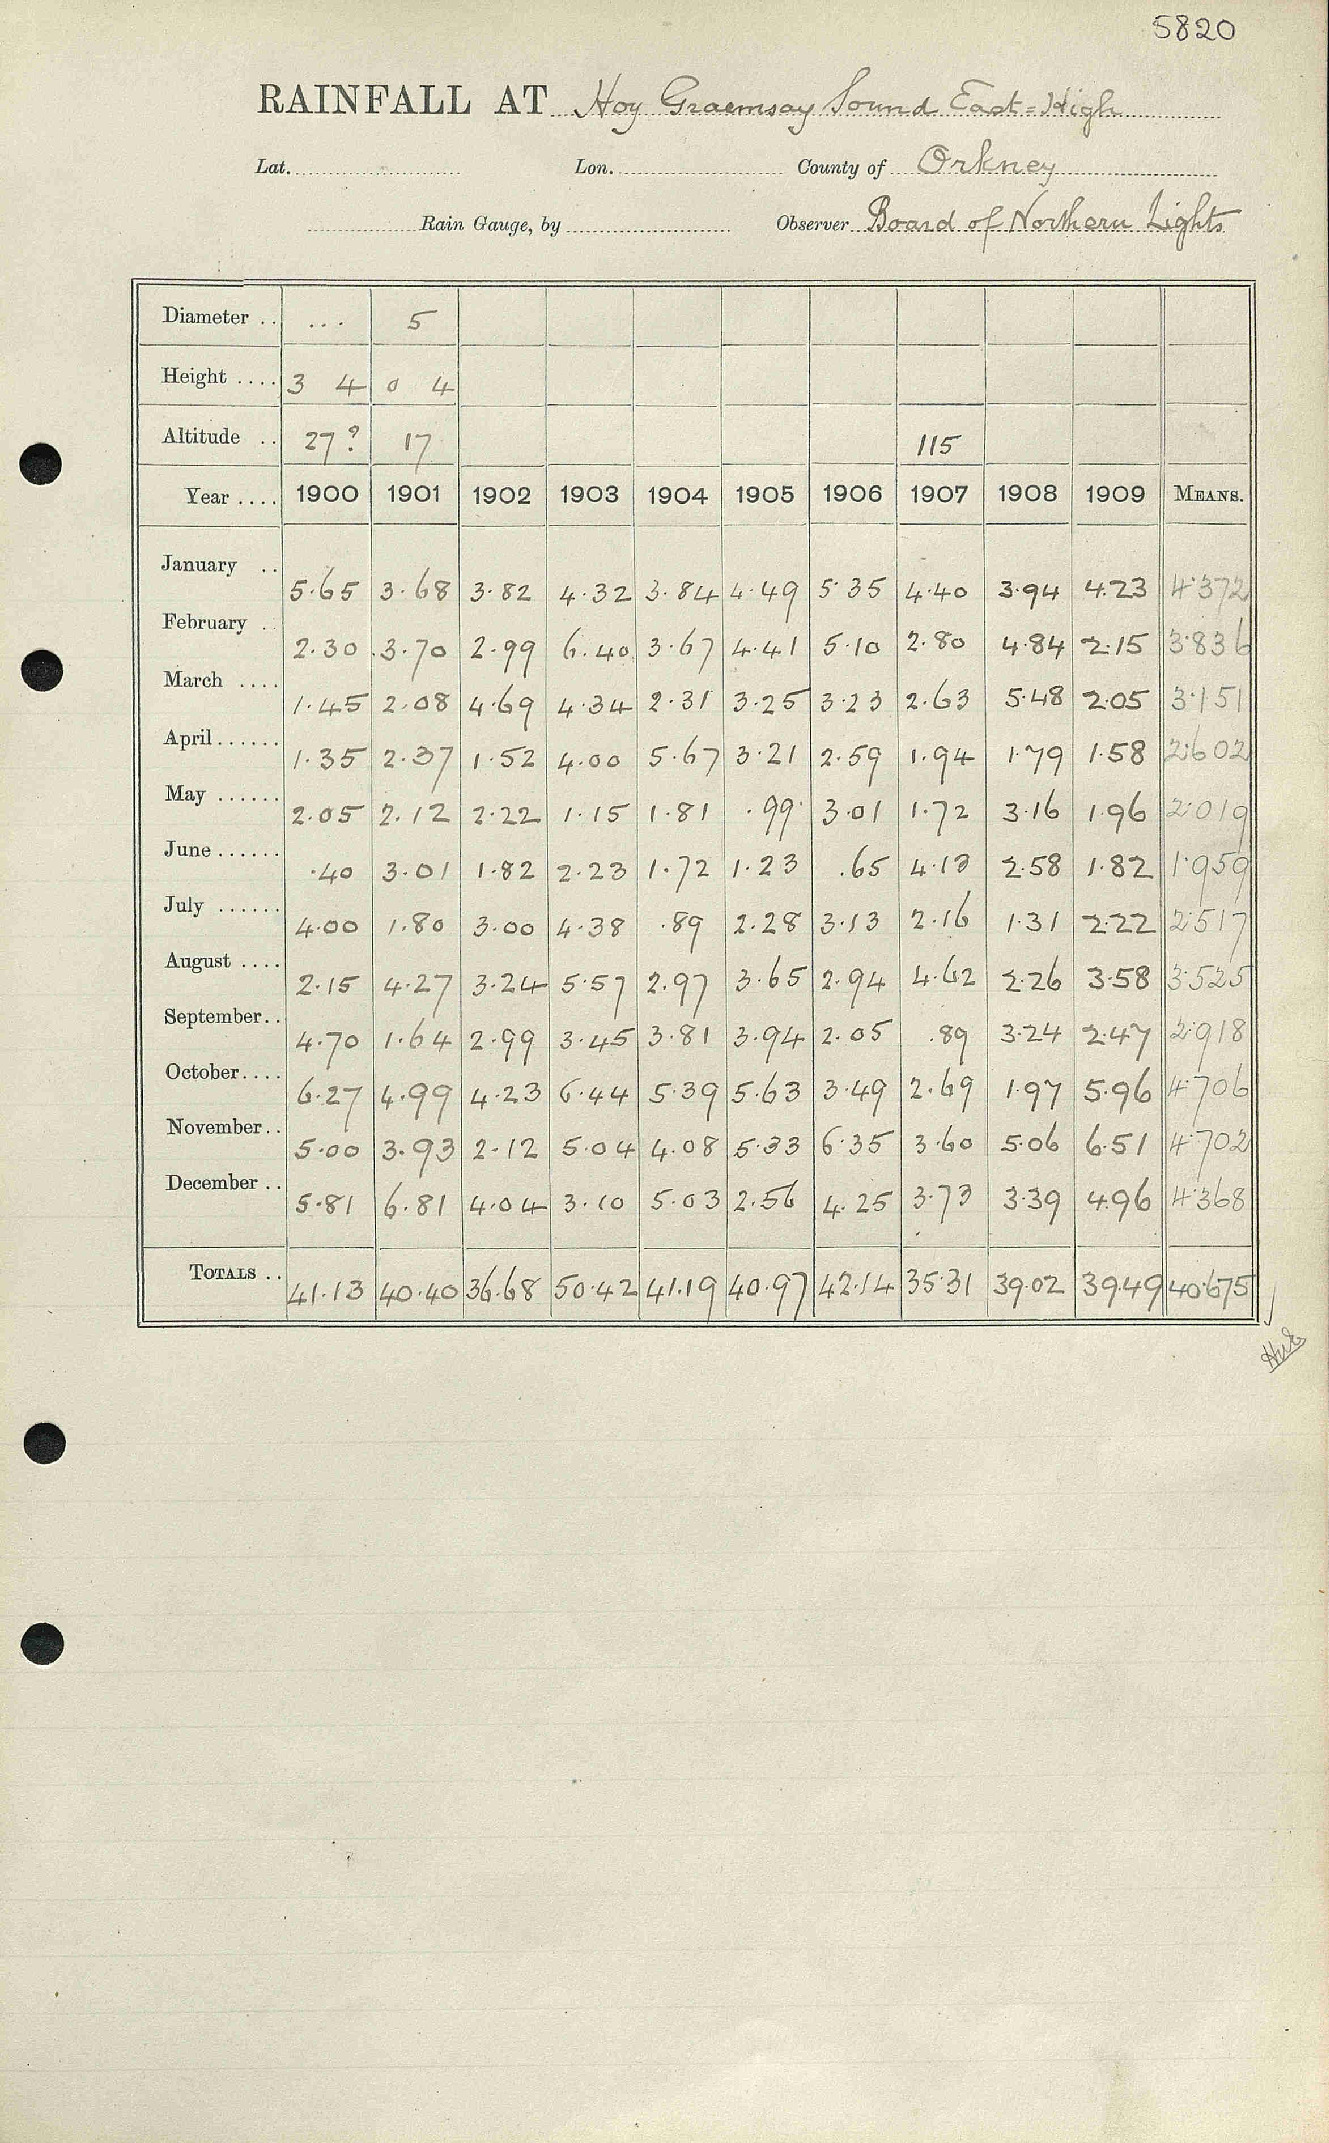 5820
RAINFALL AT Hoy Graemsay Sound East = High
Lat. Lon. County of Orkney
Rain Gauge, by Observer Board of Northern Lights
Diameter .. ... 5
Height .... 3 4 0 4
Altitude .. 27? 17 115
Year .... 1900 1901 1902 1903 1904 1905 1906 1907 1908 1909 MEANS.
January .. 5.65 3.68 3.82 4.32 3.84 4.49 5.35 4.40 3.94 4.23 4.372
February .. 2.30 3.70 2.99 6.40 3.67 4.41 5.10 2.80 4.84 2.15 3.836
March .... 1.45 2.08 4.69 4.34 2.31 3.25 3.23 2.63 5.48 2.05 3.151
April ...... 1.35 2.37 1.52 4.00 5.67 3.21 2.59 1.94 1.79 1.58 2.602
May ...... 2.05 2.12 2.22 1.15 1.81 .99 3.01 1.72 3.16 1.96 2.019
June ...... .40 3.01 1.82 2.23 1.72 1.23 .65 4.13 2.58 1.82 1.959
July ...... 4.00 1.80 3.00 4.38 .89 2.28 3.13 2.16 1.31 2.22 2.517
August .... 2.15 4.27 3.24 5.57 2.97 3.65 2.94 4.62 2.26 3.58 3.525
September.. 4.70 1.64 2.99 3.45 3.81 3.94 2.05 .89 3.24 2.47 2.918
October.... 6.27 4.99 4.23 6.44 5.39 5.63 3.49 2.69 1.97 5.96 4.706
November.. 5.00 3.93 2.12 5.04 4.08 5.33 6.35 3.60 5.06 6.51 4.702
December .. 5.81 6.81 4.04 3.10 5.03 2.56 4.25 3.73 3.39 4.96 4.368
TOTALS .. 41.13 40.40 36.68 50.42 41.19 40.97 42.14 35.31 39.02 39.49 40.675